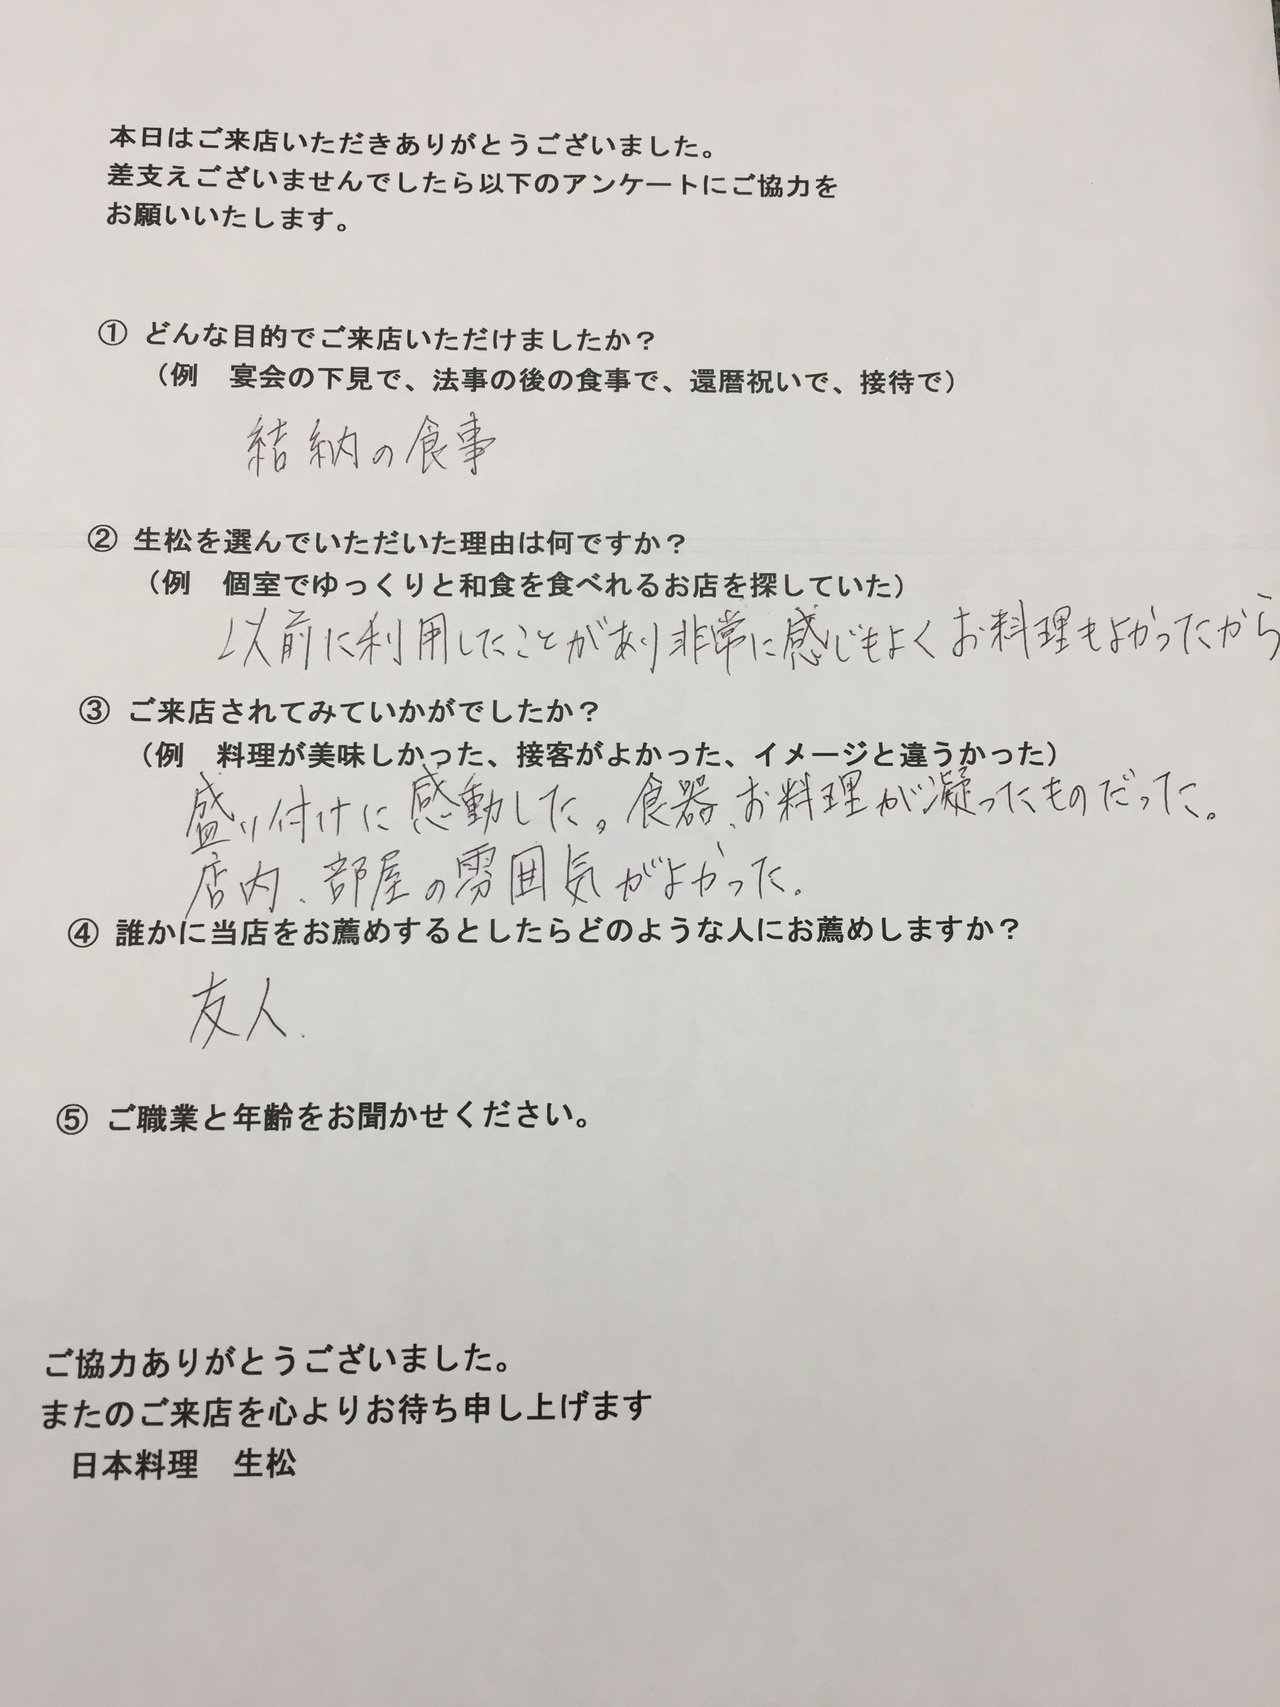 本日はご来店いただきありがとうございました。
差支えございませんでしたら以下のアンケートにご協力を
お願いいたします。
① どんな目的でご来店いただけましたか？
（例　宴会の下見で、法事の後の食事で、還暦祝いで、接待で）
結納の食事
② 生松を選んでいただいた理由は何ですか？
（例　個室でゆっくりと和食を食べれるお店を探していた）
以前に利用したことがあり非常に感じもよくお料理もよかったから
③ ご来店されてみていかがでしたか？
（例　料理が美味しかった、接客がよかった、イメージと違うかった）
盛り付けに感動した。食器、お料理が凝ったものだった。
店内、部屋の雰囲気がよかった。
④ 誰かに当店をお薦めするとしたらどのような人にお薦めしますか？
友人.
⑤ ご職業と年齢をお聞かせください。
ご協力ありがとうございました。
またのご来店を心よりお待ち申し上げます
日本料理　生松